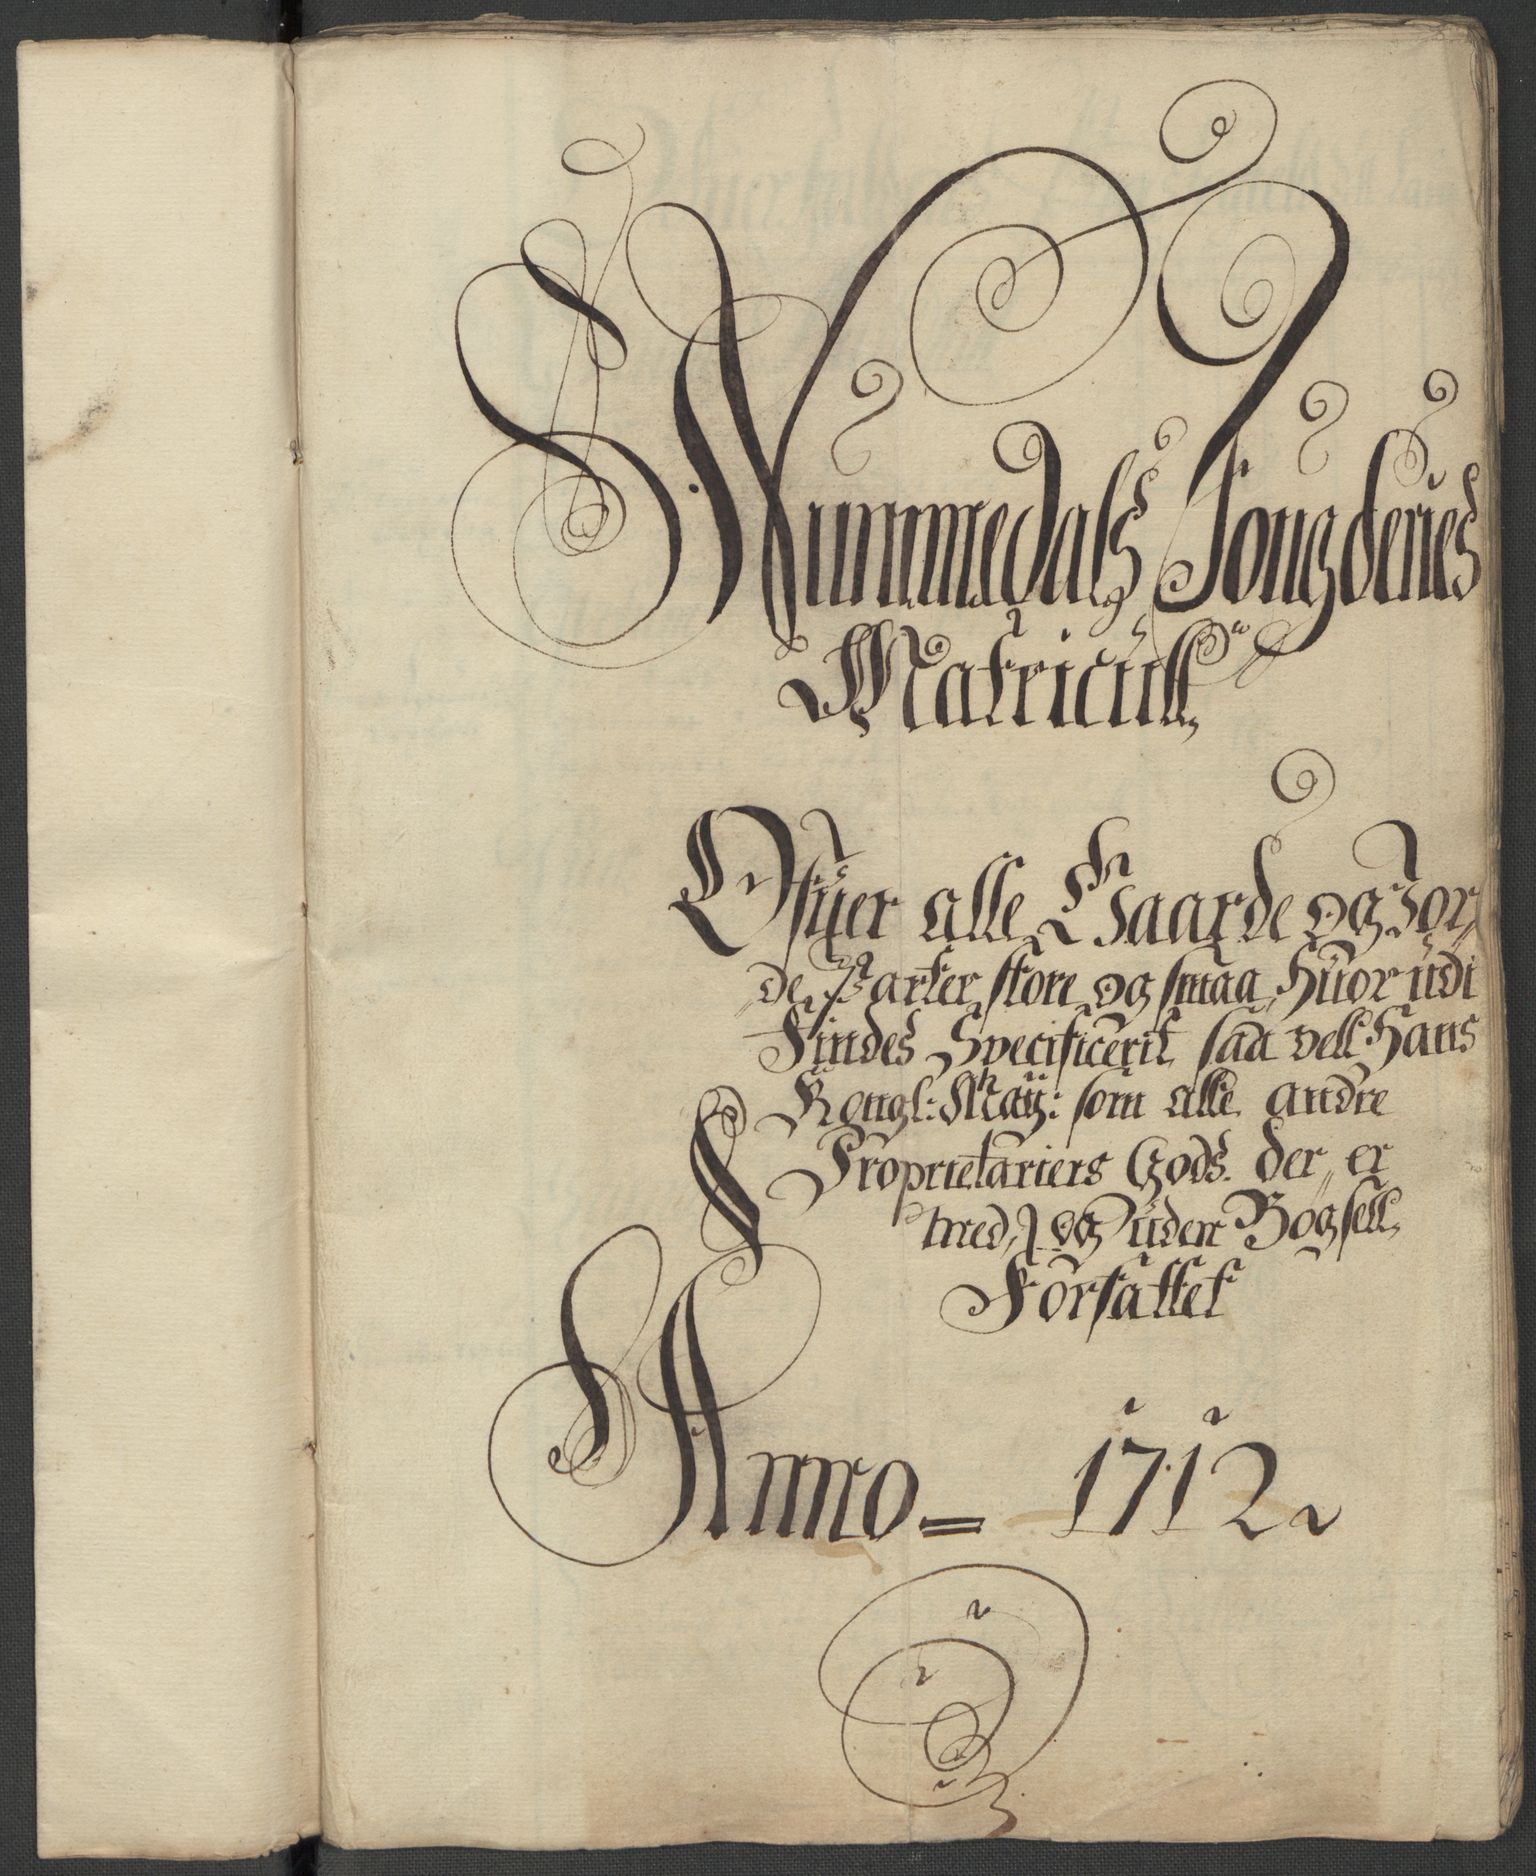 Nummedals Fougderies
Matricull
Ofuer alle Gaarde og Jor„
de Parter store og smaa, Huor udi
Findes Specificerit saa vell Hans
Kongl: May: som alle andre
Proprietariers Gods. der er
med, og uden Bögsell,
Forfattet
Anno= 1712